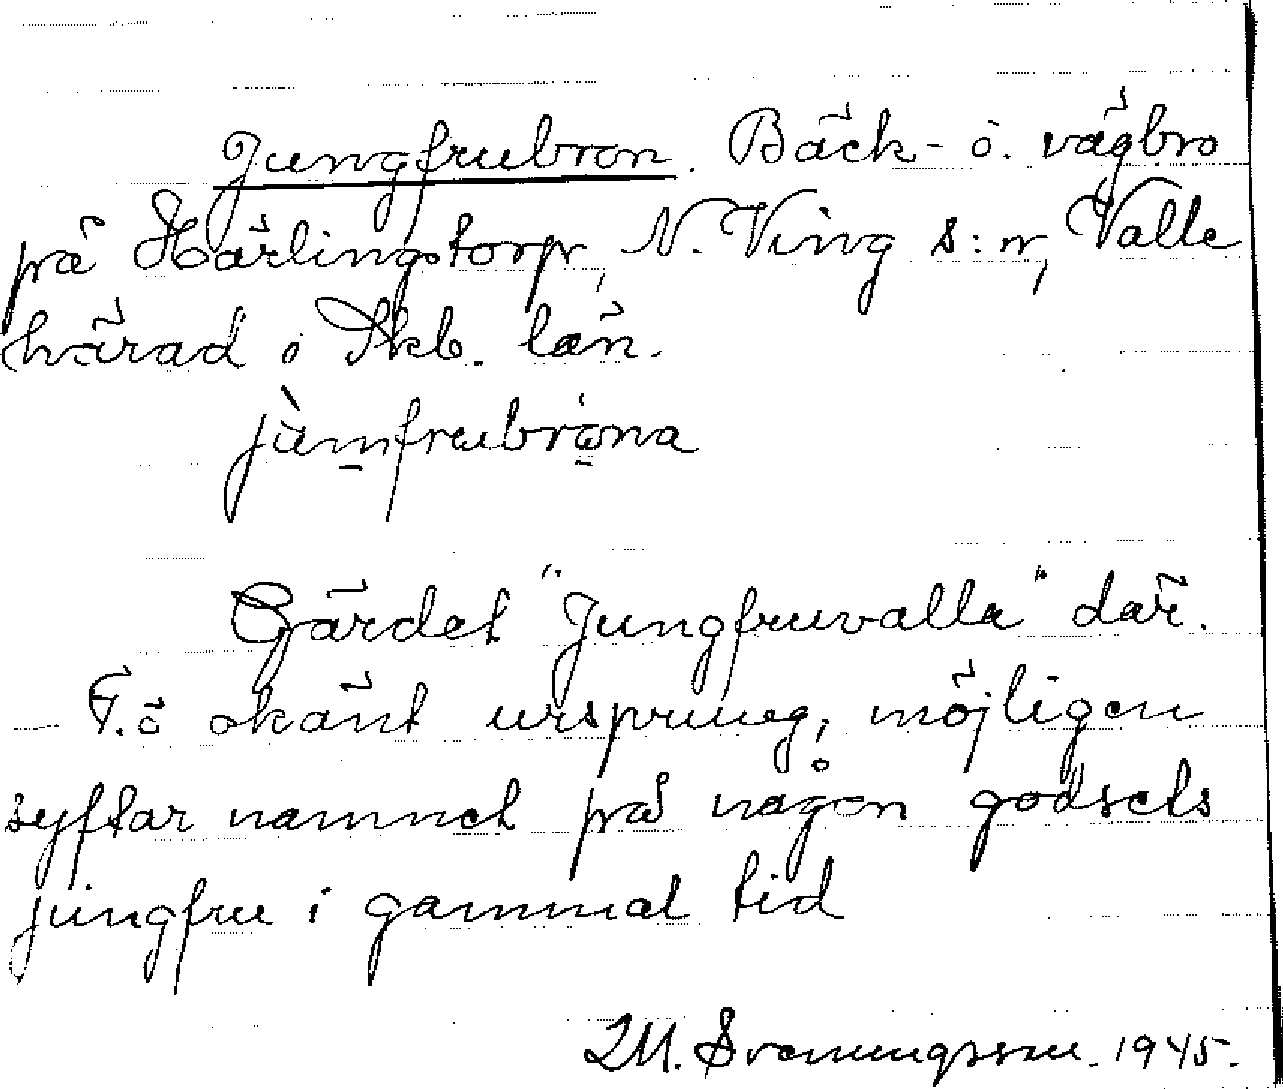 Jungfrubron. Bäck- o. vägbro
på Härlingstorp, N. Ving s:n, Valle
härad i Skb. län.
jùmfrubrona
Gärdet "Jungfruvalla" där.
F.ö okänt ursprung, möjligen
syftar namnet på någon godsels
jungfru i gammal tid
Sveningsson. 1945.